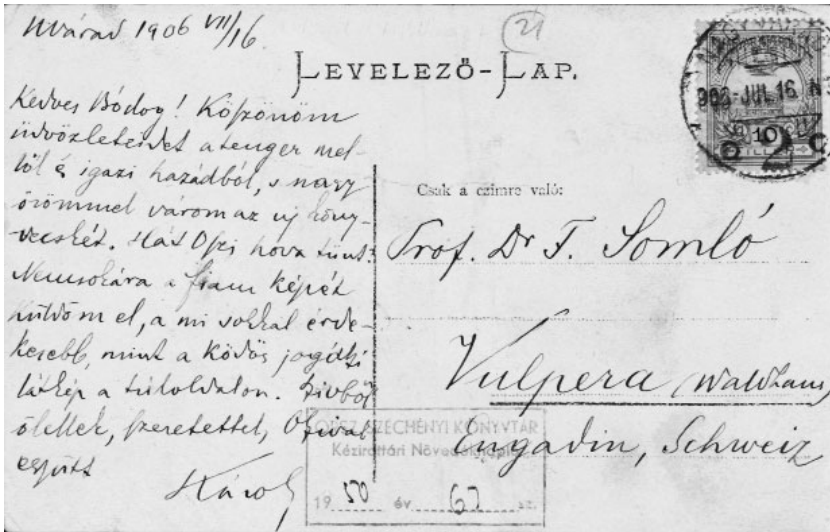 Nvárad 1906 VII/16.
21
LEVELEZŐ-LAP.
Kedves Bódog! Köszönöm
üdvözleteidet a tenger mel-
től és igazi hazádból, s nagy
örömmel várom az uj köny-
vecskét. Hát Ofzi hova tünt?
Nemsokára a fiam képét
küldöm el, a mi sokkal érde-
kesebb, mint a ködös
látkép a túloldalon. Szivből
ölellek, szeretettel,
együtt
Károly
906 JUL. 16
10
Csak a czimre való:
Prof. Dr F. Somló
Vulpera (Waldhaus)
Engadin, Schweiz
ORSZ. SZÉCHÉNYI KÖNYVTÁR
Kézirattári Növedéknapló
1950 év 67 sz.